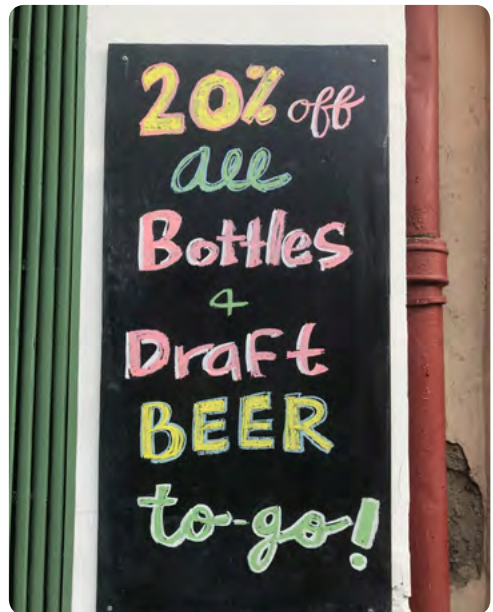 20% off
all
Bottles
&
Draft
BEER
to-go!